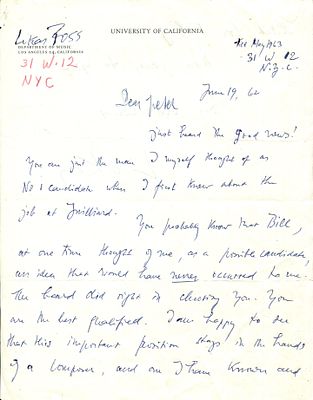 UNIVERSITY OF CALIFORNIA
Lukas Foss
DEPARTMENT OF MUSIC
LOS ANGELES 24, CALIFORNIA
31 W. 12
NYC
May 1963
31 W 12
N.Y.C.
June 19, 62
Dear Peter
just heard the good news!
You are just the man I myself thought of as
No 1 candidate when I first knew about the
job at Juilliard.
You probably know that Bill,
at one time thought of me, as a possible candidate,
an idea that would have never occurred to me.
The board did right in choosing You. You
are the best qualified. I am happy to see
that this important position stays in the hands
of a composer, and one I have known and